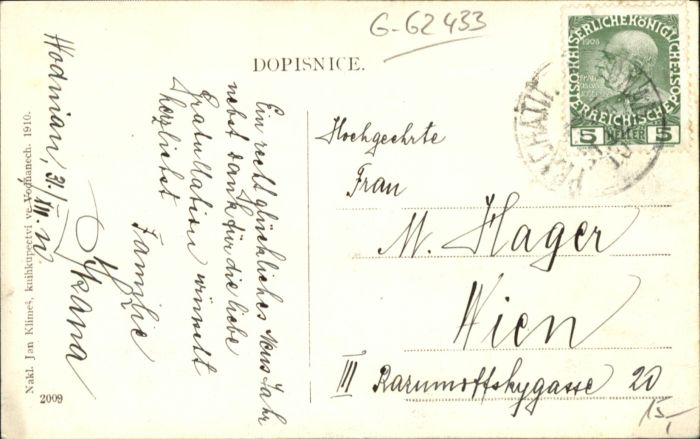 G-62433
DOPISNICE.
Wodnian, 31./XII. 10
Ein recht glückliches Neus Jahr
nebst Dank für die liebe
Gratulation wünscht
herzlichst
Familie
Sykana
Nakl. Jan Klimeš, knihkupectví ve Vodňanech. 1910.
2009
KAISERLICHE KÖNIGLICHE
1908
ÖSTERREICHISCHE POST
5 HELLER 5
PRACHATI
Hochgeehrte
Frau
M. Hager
Wien
III Rasumoffskygasse 20
15,-